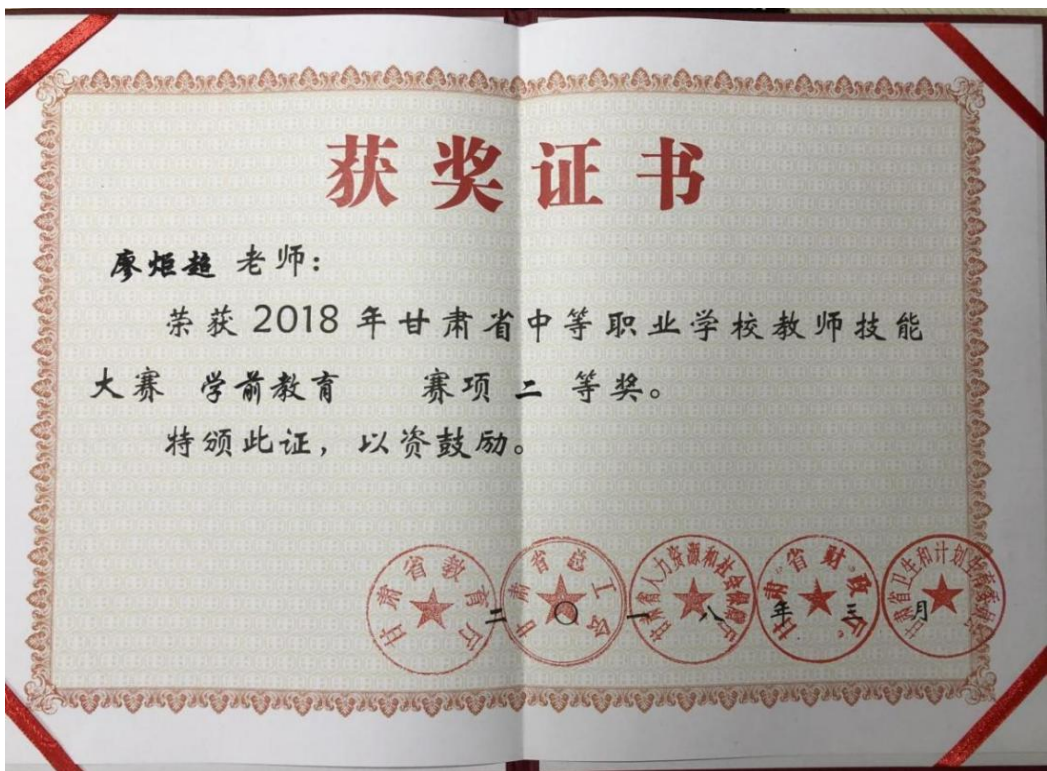 获奖证书
廖炬超 老师：
荣获 2018 年甘肃省中等职业学校教师技能
大赛 学前教育 赛项 二 等奖。
特颁此证，以资鼓励。
甘肃省教育厅
甘肃省总工会
甘肃省人力资源和社会保障厅
甘肃省财政厅
甘肃省卫生和计划生育委员会
二〇一八年三月